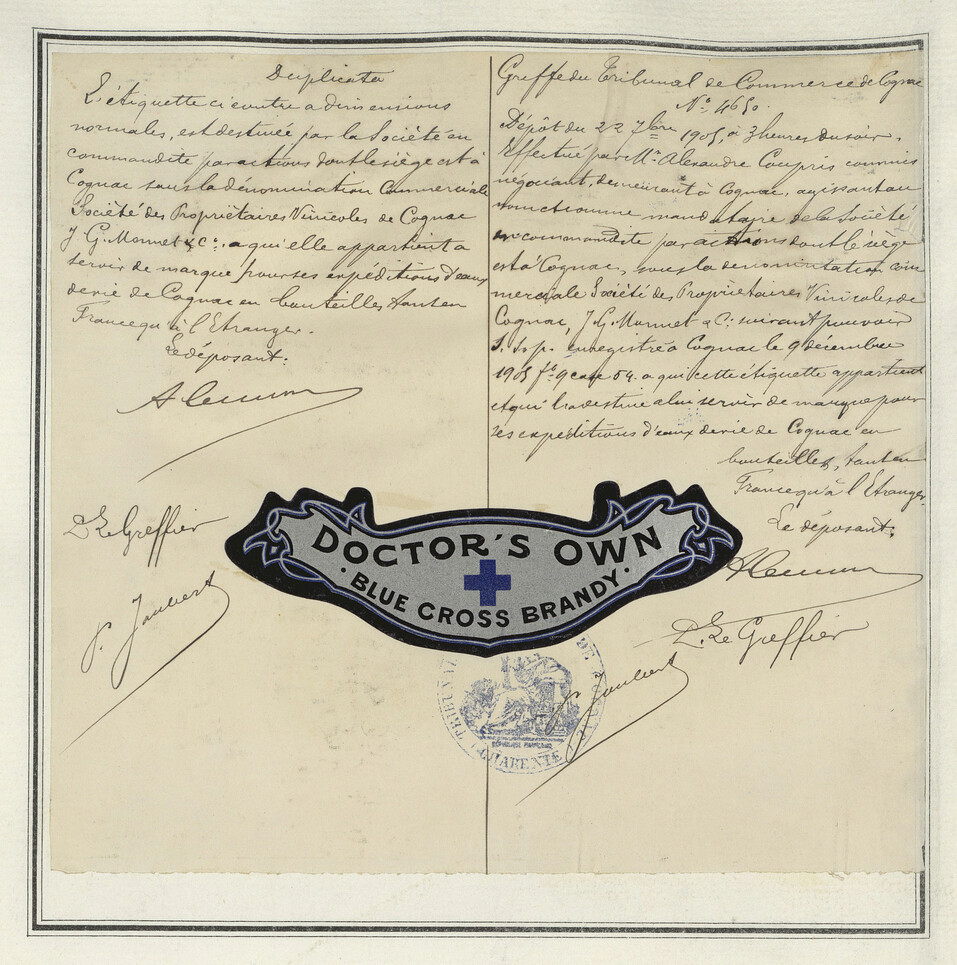 Duplicata
L'étiquette ci contre a dimensions
normales, est destinée par la Société en
commandite par actions dont le siège est à
Cognac sous la dénomination Commerciale
Société des Propriétaires Vinicoles de Cognac
J. G. Monnet & Co. a qui elle appartient a
servir de marque pour ses expéditions d'eaux
de vie de Cognac en bouteilles tant en
France qu'à l'Etranger.
Le déposant.
Le Greffier
P. Jaubert
Greffe du Tribunal de Commerce de Cognac
No. 4650.
Dépôt du 22 7bre 1905, à 3 heures du soir.
Effectué par Mr. Alexandre Coupris commis
négociant, demeurant à Cognac, agissant au
nom et comme mandataire de la Société
en commandite par actions dont le siège
est à Cognac, sous la denomination com
merciale Société des Propriétaires Vinicoles de
Cognac, J. G. Monnet & Co. suivant pouvoir
s. s. p. enregistré à Cognac le 9 décembre
1905 fo. 9 case 54. a qui cette étiquette appartient
et qui la destine a lui servir de marque pour
ses expéditions d'eaux de vie de Cognac en
bouteilles, tant en
France qu'à l'Etranger.
Le déposant.
Le Greffier
P. Jaubert
DOCTOR'S OWN
·BLUE CROSS BRANDY·
TRIBUNAL
RÉPUBLIQUE FRANÇAISE
(CHARENTE)